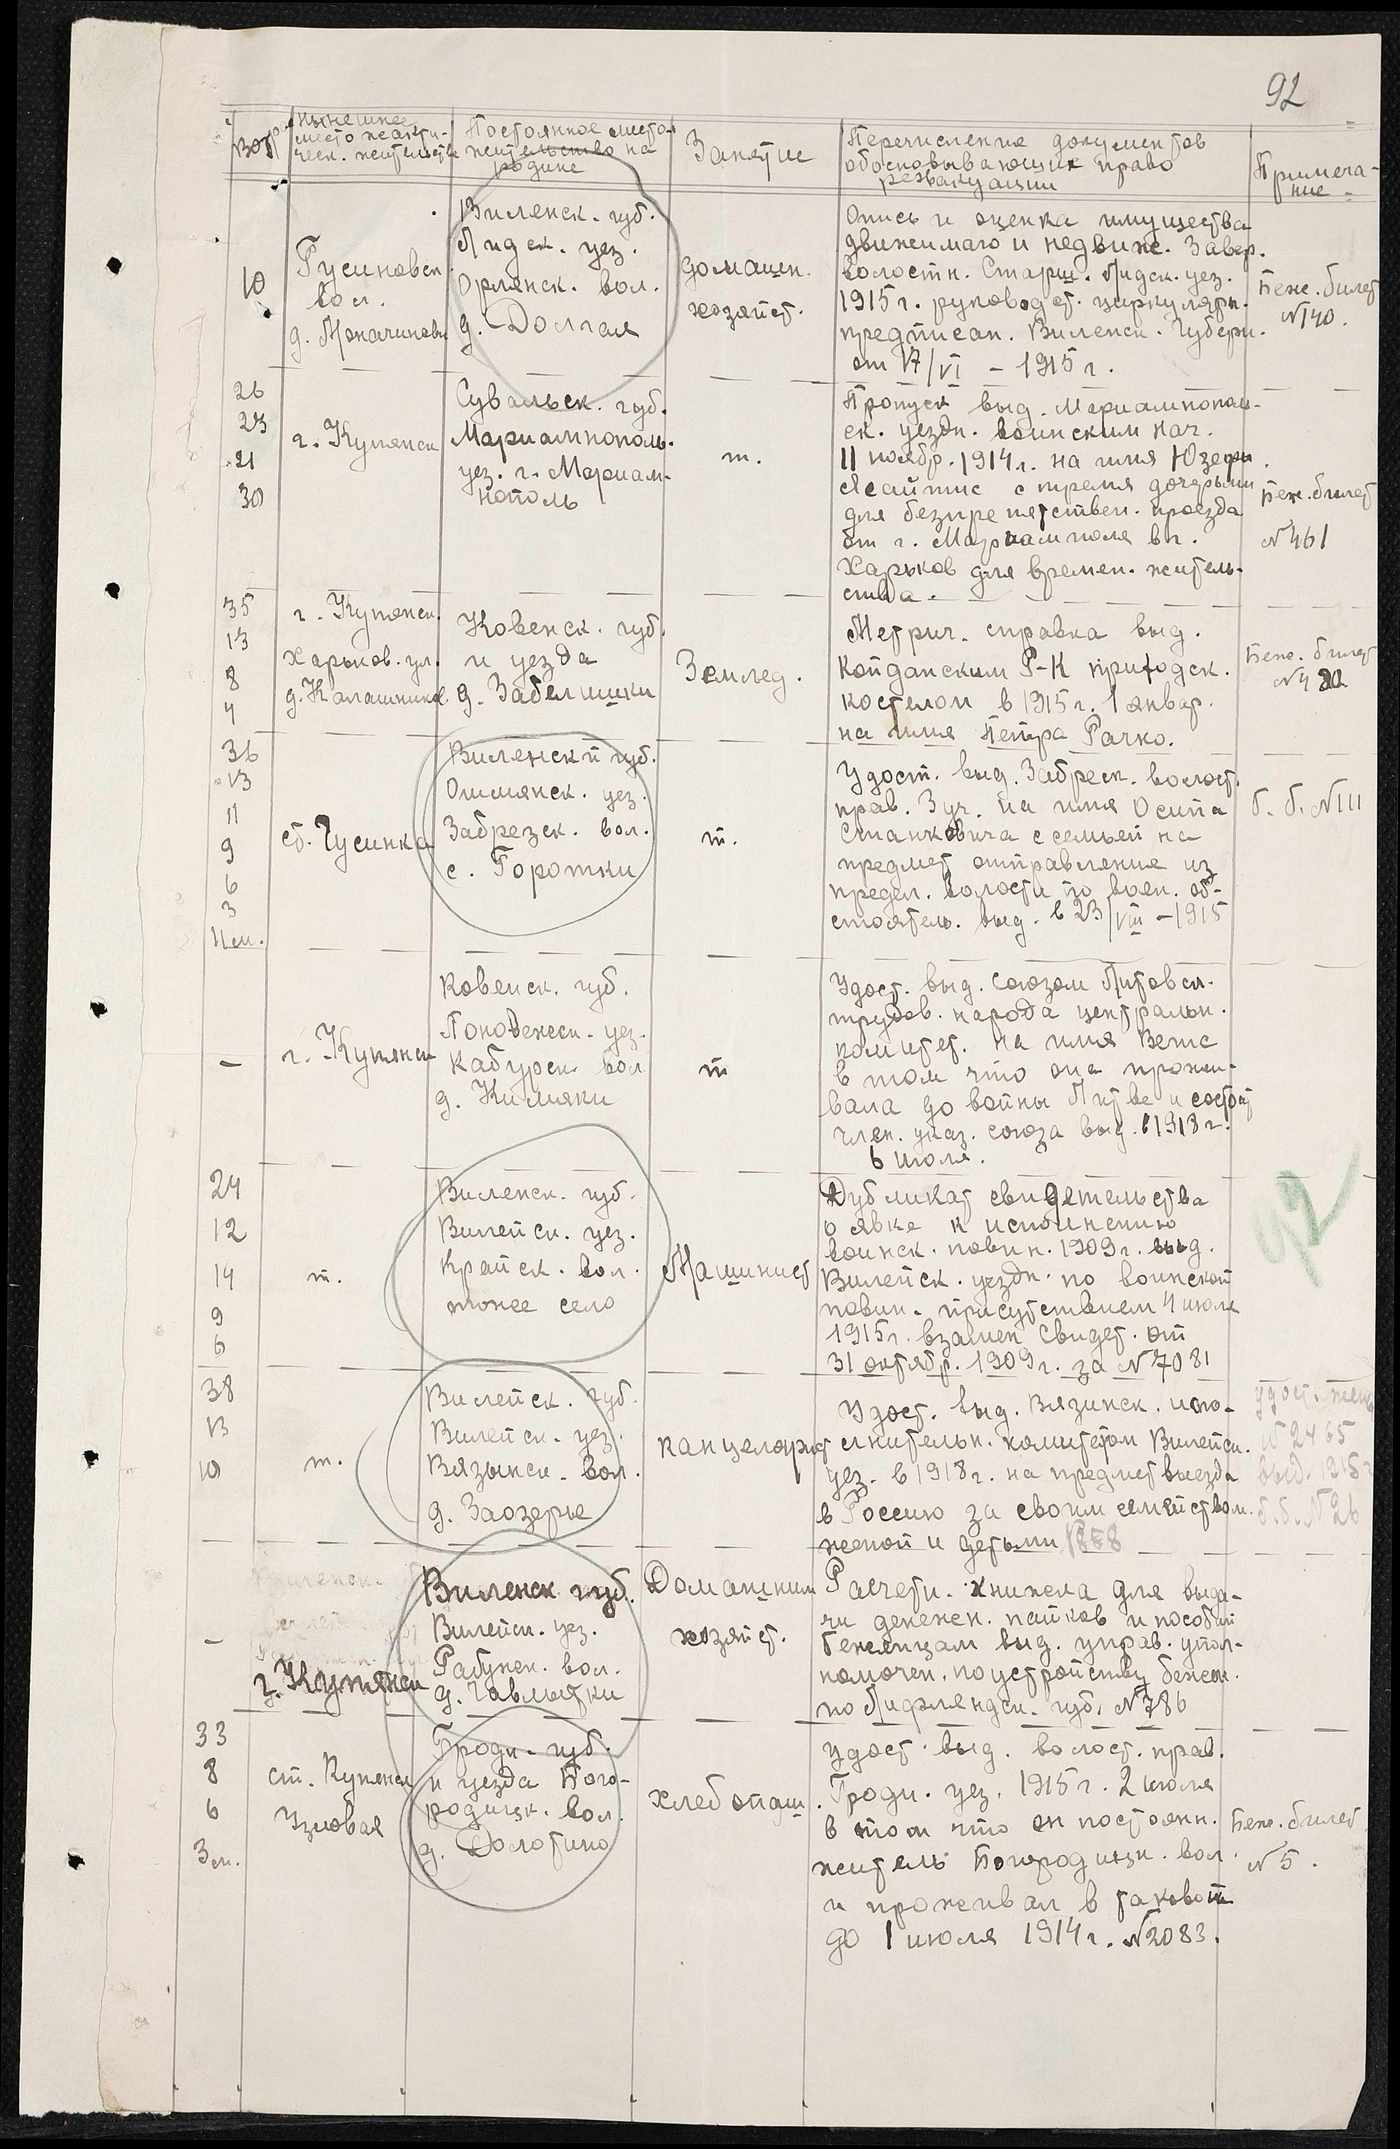 92
Возр
нынешнее
место факти-
ческ. жительств
Постоянное место-
жительство на
родине
Занятие
Перечисление документов
обосновывающих право
реэвакуации
Примеча-
ние
10
Русиновск
вол.
д.
Виленск. губ.
Лидск. уез.
Орлянск. вол.
д. Долгая
домашн.
хозяйст.
Опись и оценка имущества
движимаго и недвиж. Завер.
волостн. Старш. Лидск. уез.
1915 г. руководст. циркулярн.
предписан. Виленск. Губерн.
от 17/VI - 1915 г.
Беж. билет
№140.
26
23
21
30
г. Купянск
Сувальск. губ.
Мариампополь.
уез. г. Мариам-
пополь
т.
Пропуск выд. Мариампопол-
ск. уездн. воинским нач.
11 ноябр. 1914 г. на имя Юзефы
с тремя дочерьми
для безпрепятствен. проезда
от г. Мариамполя в г.
Харьков для времен. житель-
ства.
Беж. билет
№461
35
13
8
4
г. Купянск.
Харьков. ул.
д. Калашников
Ковенск. губ.
и уезда
д. Забелишки
Землед.
Метрич. справка выд.
Койданским Р-К приходск.
костелом в 1915 г. 1 январ.
на имя Петра Рачко.
Беж. билет
36
13
11
9
6
3
11 м.
ст. Гусинка
Виленской губ.
Ошмянск. уез.
Забрезск. вол.
с. Горотки
т.
Удост. выд. Забреск. волост.
прав. З уч. на имя Осипа
Станкевича с семьей на
предмет отправления из
предел. волости по воен. об-
стоятель. выд. в 23/VIII - 1915
б. б. №111
-
г. Купянск
Ковенск. губ.
Поновежск. уез.
вол
д. Кимяки
т
Удост. выд. союзом Литовск.
трудов. народа центральн.
комитет. на имя
в том что она прожи-
вала до войны Литве и состоит
член. указ. союза выд. в 1918 г.
6 июля.
24
12
14
9
6
т.
Виленск. губ.
Вилейск. уез.
Крайск. вол.
тонее село
Машинист
Дубликат свидетельства
о явке к исполнению
воинск. повин. 1909 г. выд.
Вилейск. уездн. по воинской
повин. присутствием 4 июля
1915 г. взамен свидет. от
31 октябр. 1909 г. за №7081
92
38
13
10
т.
Вилейск. губ.
Вилейск. уез.
Вязынск. вол.
д. Заозерье
канцелярист
Удост. выд. Вязинск. испо-
лнительн. комитетом Вилейск.
уез. в 1918 г. на предмет выезда
в Россию за своим семейством.
женой и детьми
удост. жены
№2465
выд. 1915 г
б. б. №26
-
г. Купянск
Виленск губ.
Вилейск. уез.
Рабунск. вол.
д. Гавлытки
Домашним
хозяйст.
Расчетн. книжка для выда-
чи денежн. пайков и пособий
беженцам выд. управ. упол-
номочен. по устройству бежен.
по Лифляндск. губ. №786
33
8
6
3 м.
ст. Купянск
Узловая
Гродн. губ.
и уезда Бого-
родицк. вол.
д. Долотино
хлебопаш.
Удост. выд. волост. прав.
Гродн. уез. 1915 г. 2 июля
в том что он постоянн.
житель Богородицк. вол.
и проживал в таковой
до 1 июля 1914 г. №2083.
Беж. билет
№5.